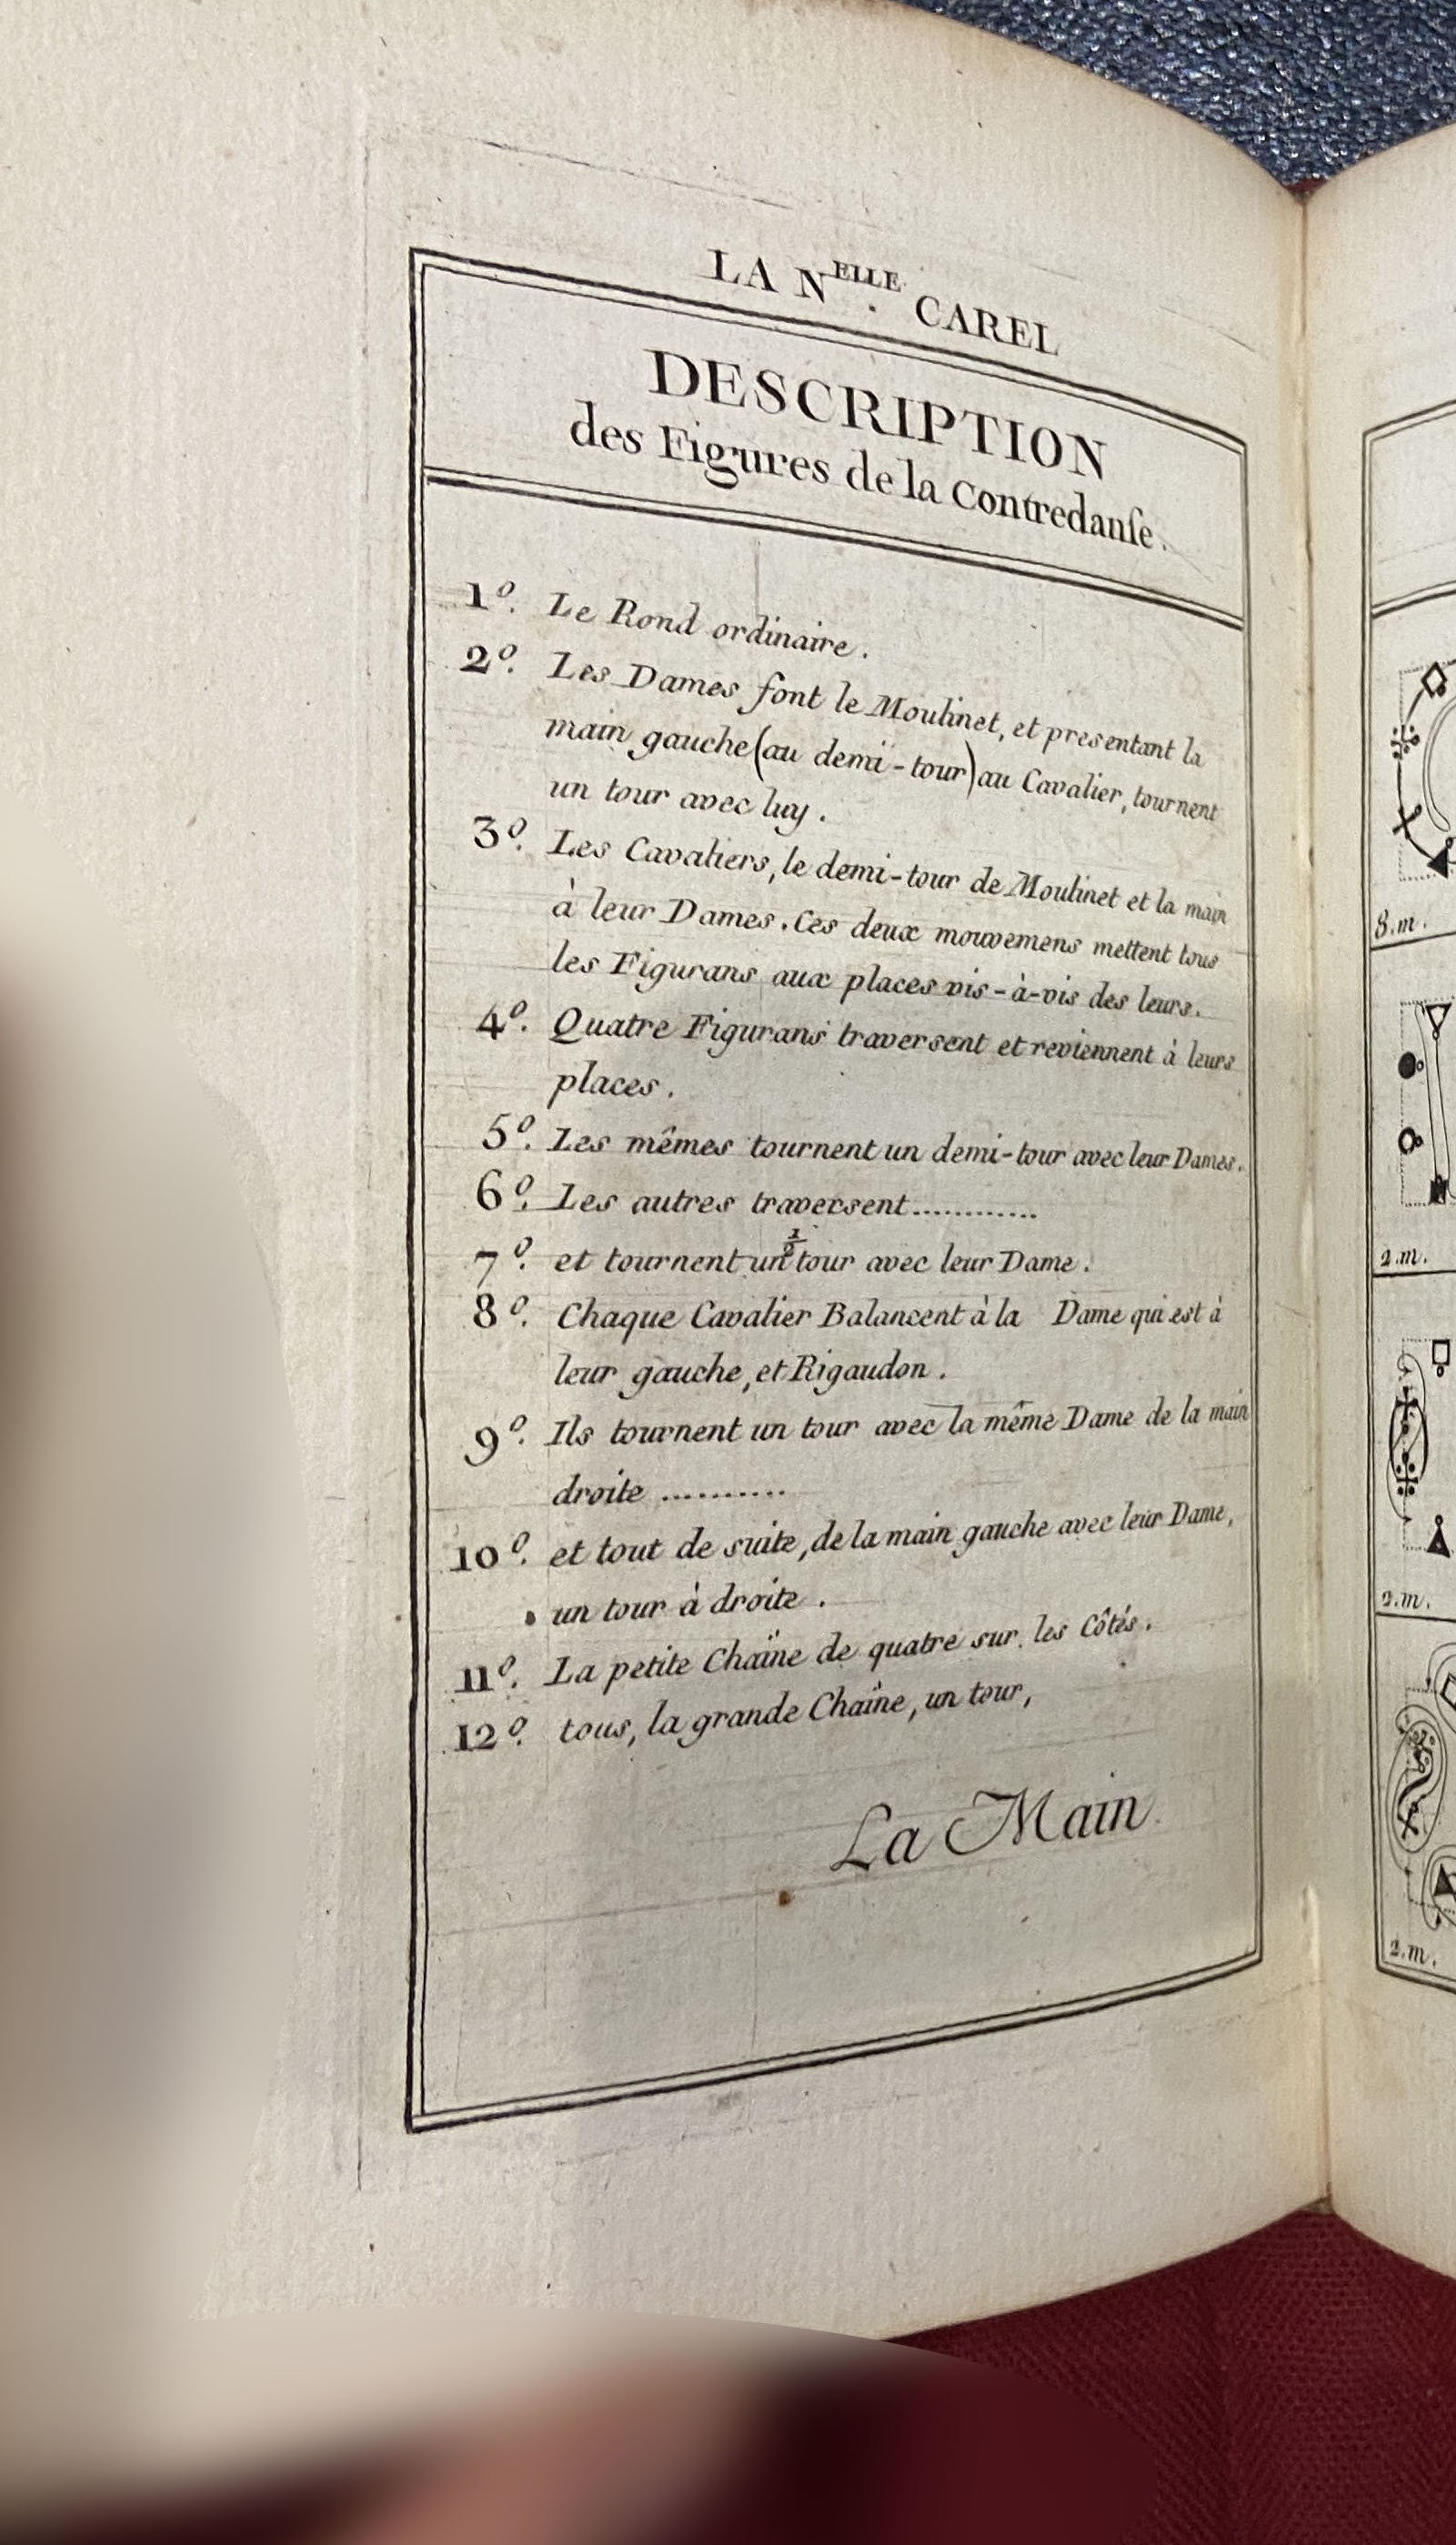 LA N^ELLE. CAREL
DESCRIPTION
des Figures de la Contredanſe.
1º. Le Rond ordinaire.
2º. Les Dames font le Moulinet, et presentant la
main gauche (au demi-tour) au Cavalier, tournent
un tour avec luy.
3º. Les Cavaliers, le demi-tour de Moulinet et la main
à leur Dames. Ces deux mouvemens mettent tous
les Figurans aux places vis-à-vis des leurs.
4º. Quatre Figurans traversent et reviennent à leurs
places.
5º. Les mêmes tournent un demi-tour avec leur Dames.
6º. Les autres traversent............
7º. et tournent un 1/2 tour avec leur Dame.
8º. Chaque Cavalier Balancent à la Dame qui est à
leur gauche, et Rigaudon.
9º. Ils tournent un tour avec la même Dame de la main
droite ..........
10º. et tout de suite, de la main gauche avec leur Dame,
un tour à droite.
11º. La petite Chaîne de quatre sur les Côtés.
12º. tous, la grande Chaîne, un tour,
La Main
8.m.
2.m.
2.m.
2.m.